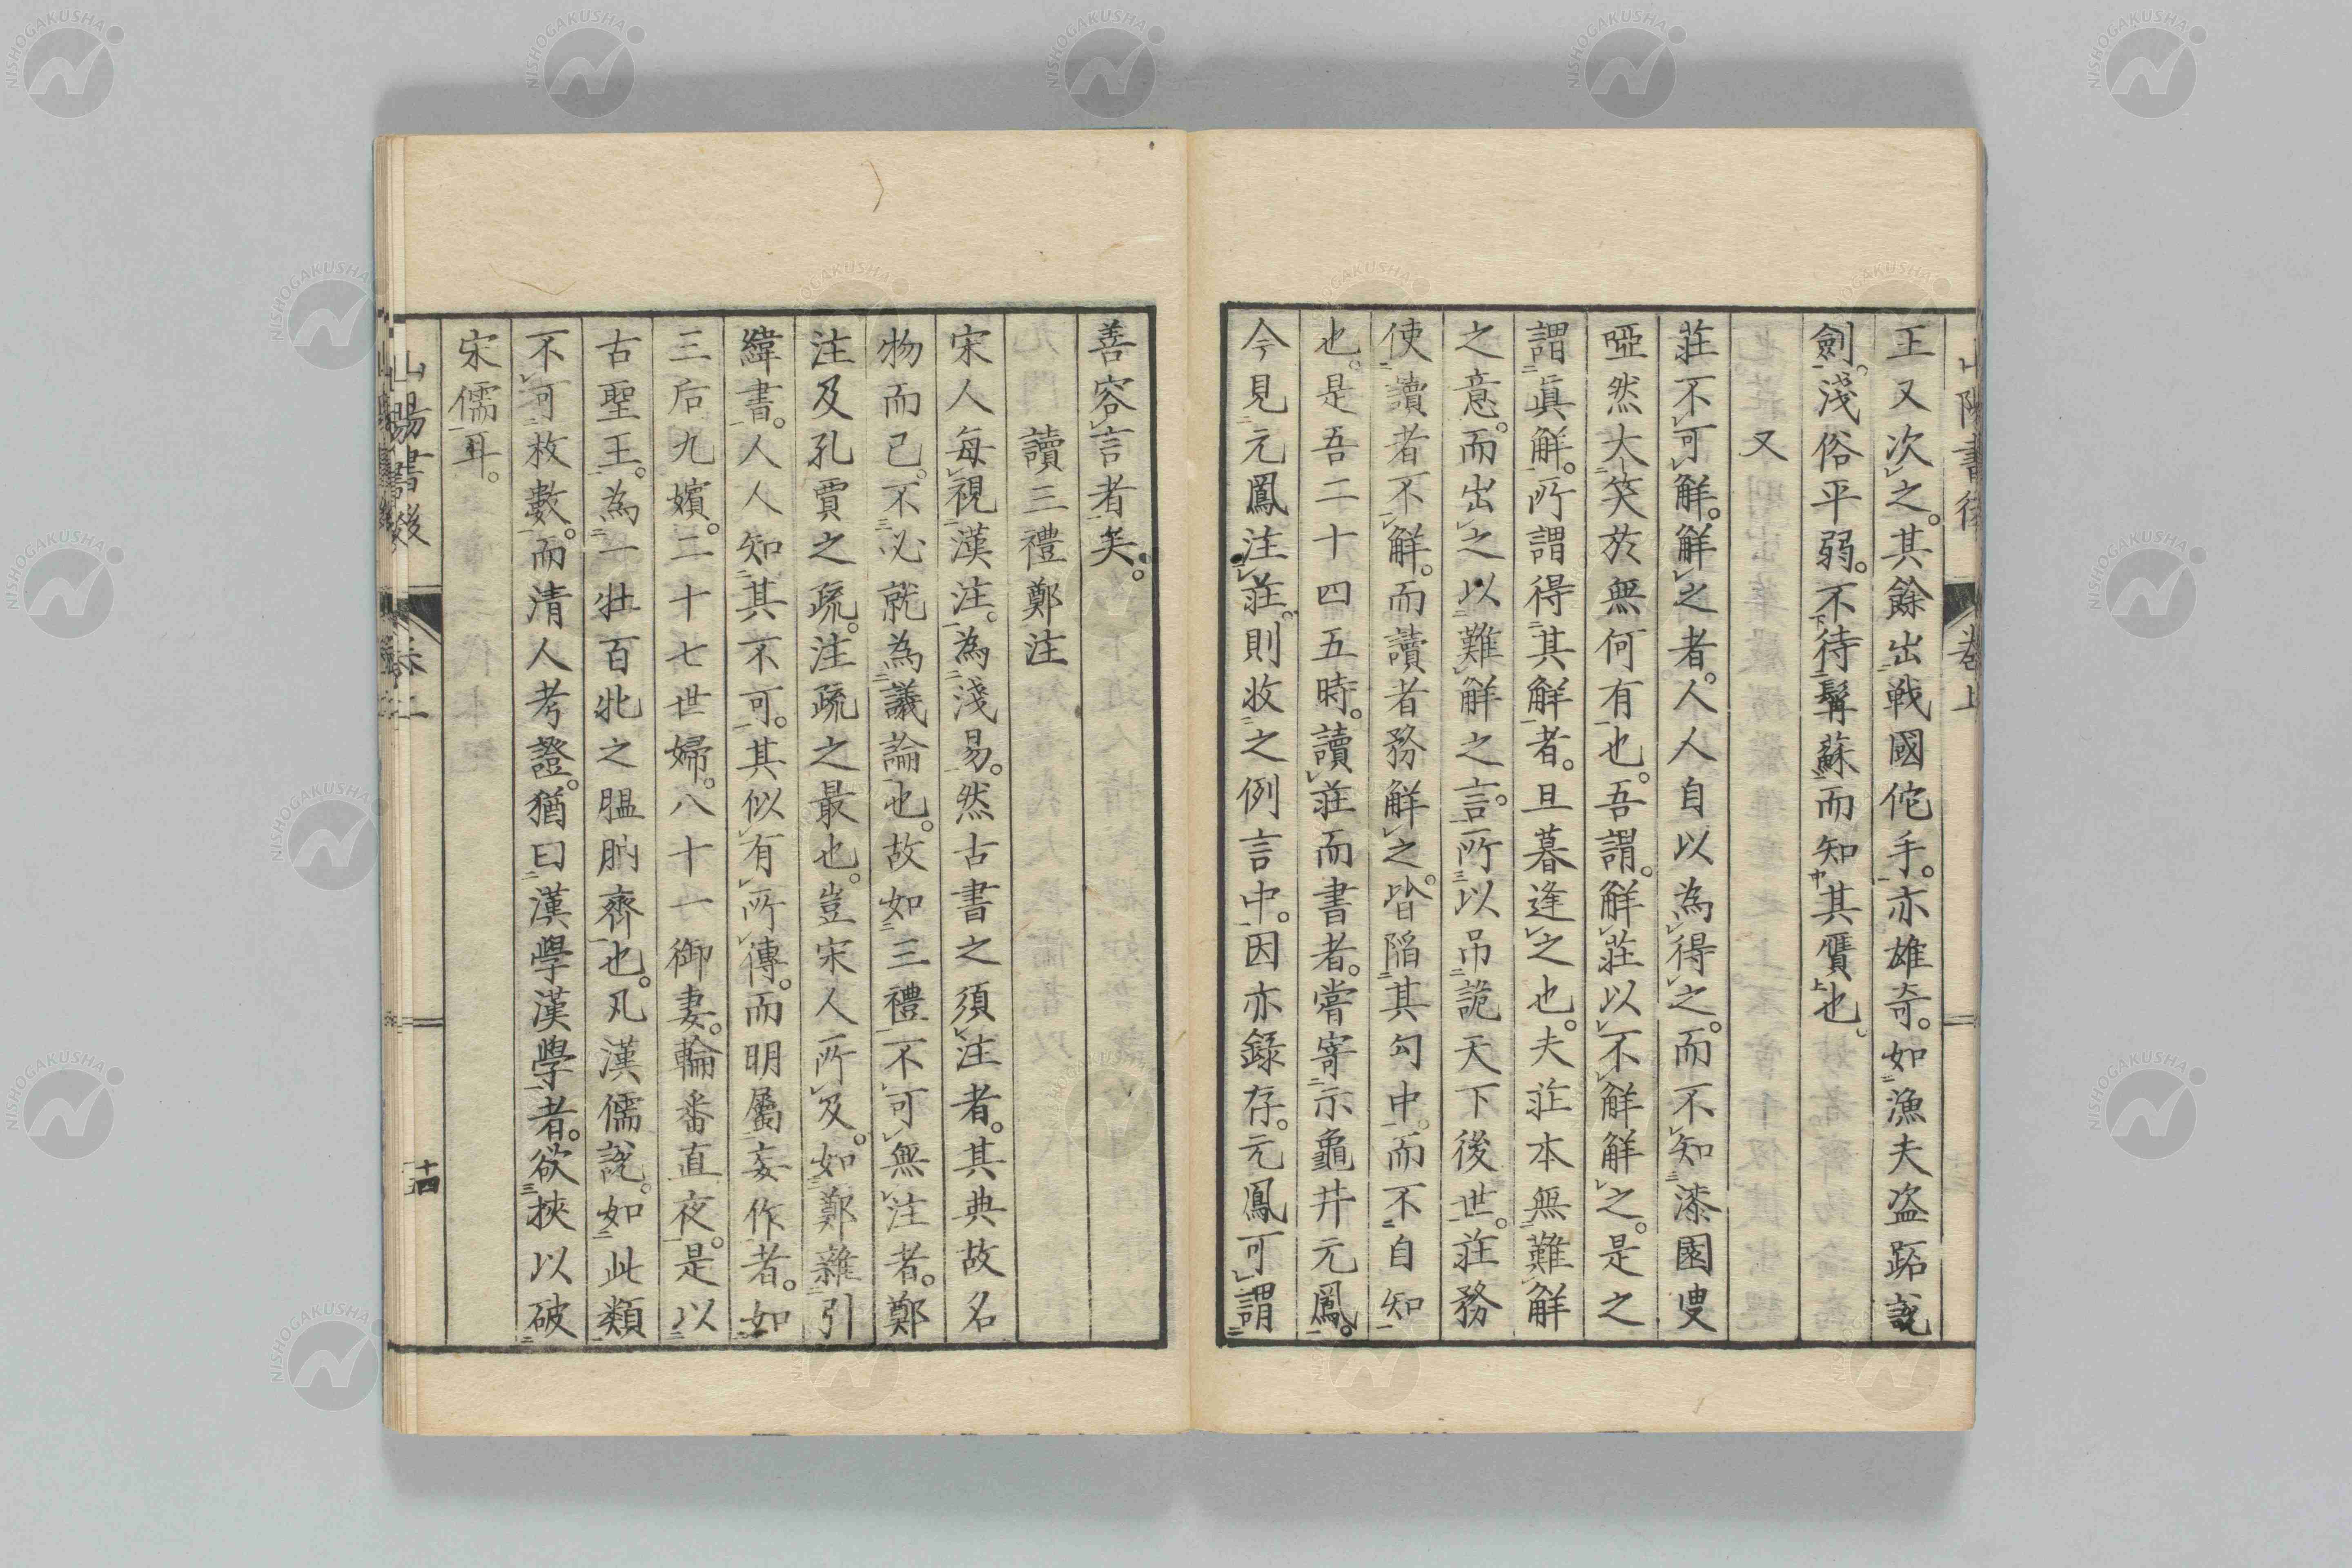 王又次之。其餘出戰國佗手。亦雄奇。如漁夫盗跖說
劍。淺俗平弱。不待髯蘇而知其贋也。
又
莊不可解。解之者。人人自以為得之。而不知漆園叟
啞然大笑於無何有也。吾謂。解莊以不解解之。是之
謂眞解。所謂得其解者。旦暮逢之也。夫莊本無難解
之意。而出之以難解之言。所以吊詭天下後世。莊務
使讀者不解。而讀者務解之。皆陷其勾中。而不自知
也。是吾二十四五時。讀莊而書者。嘗寄示龜井元鳳。
今見元鳳注莊。則收之例言中。因亦錄存。元鳳可謂
善容言者矣。
讀三禮鄭注
宋人每視漢注。為淺易。然古書之須注者。其典故名
物而已。不必就為議論也。故如三禮不可無注者。鄭
注及孔賈之疏。注疏之最也。豈宋人所及。如鄭雜引
緯書。人人知其不可。其似有所傳。而明屬妄作者。如
三后九嬪。二十七世婦。八十一御妻。輪番直夜。是以
古聖王。為一牡百牝之膃肭齊也。凡漢儒說。如此類
不可枚數。而清人考證。猶曰漢學漢學者。欲挾以破
宋儒耳。
山陽書後
卷上
十四
山陽書後
卷上
NISHOGAKUSHA